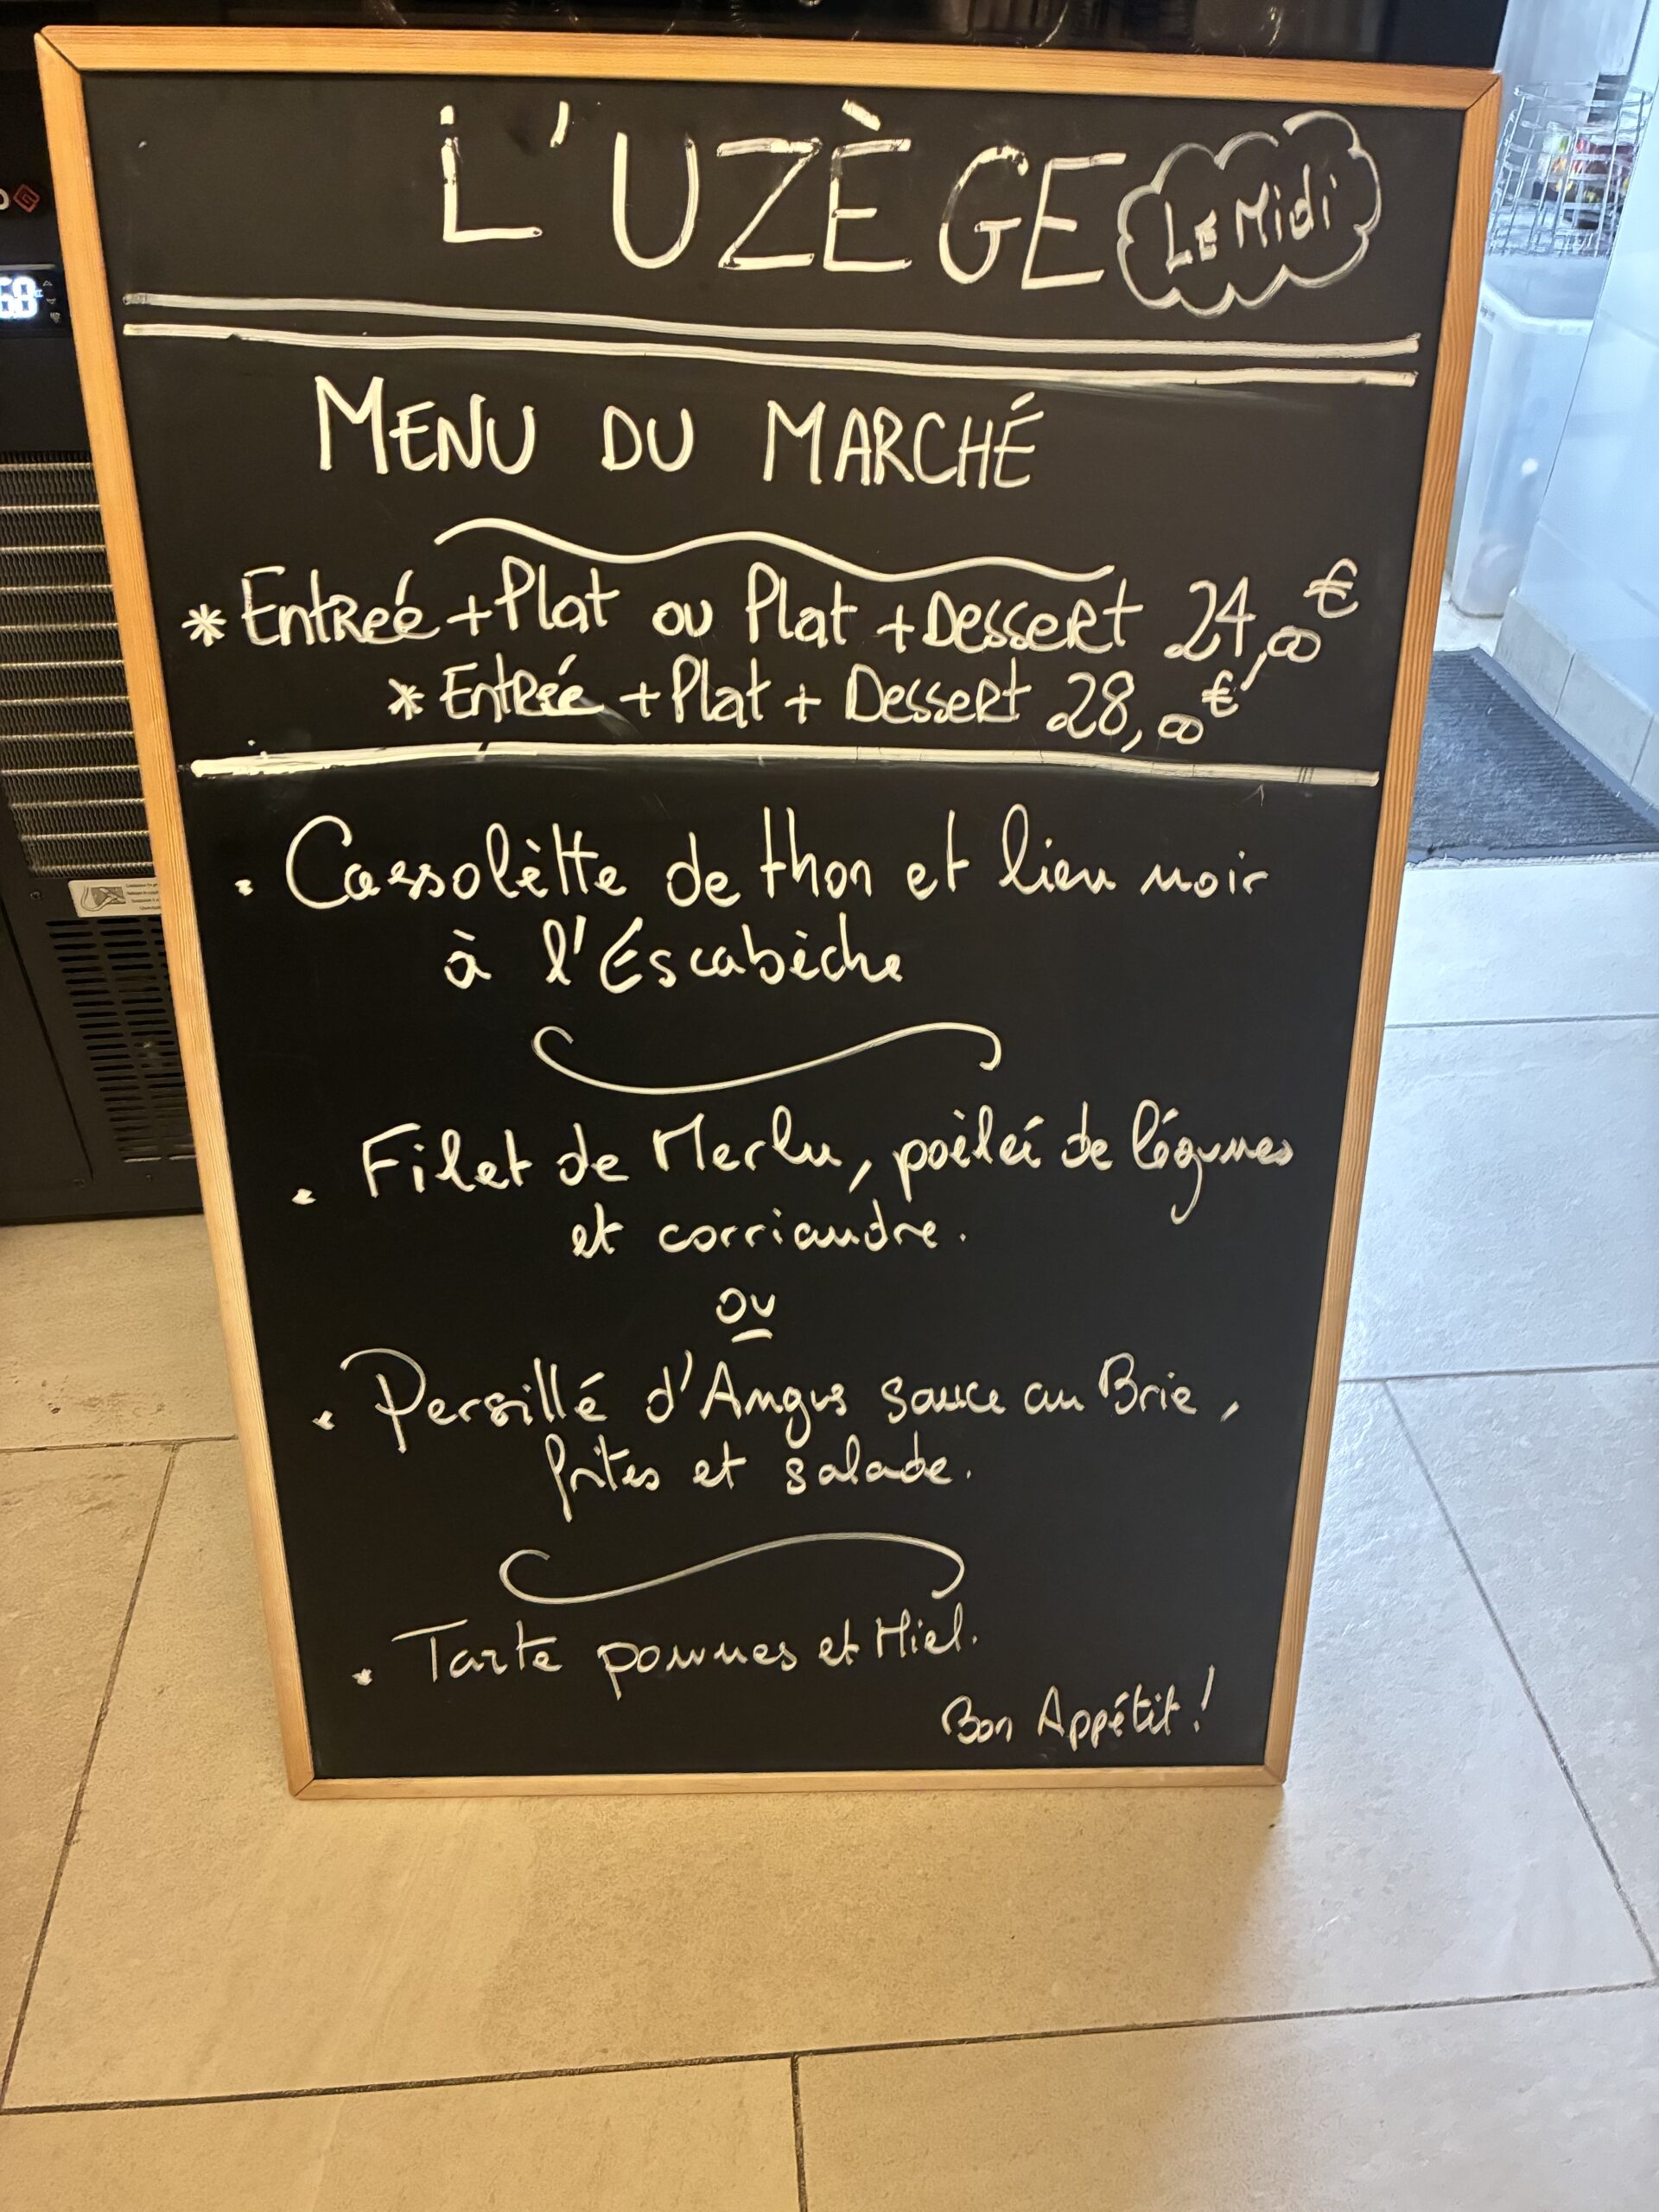 L'UZÈGE LE Midi
MENU DU MARCHÉ
* Entreé + Plat ou Plat + Dessert 24,00€
* Entrée + Plat + Dessert 28,00€
• Cassolètte de thon et lieu noir
à l'Escabèche
• Filet de Merlu, poèleé de légumes
et corriandre.
ou
• Persillé d'Angus sauce au Brie,
frites et salade.
• Tarte pommes et Miel.
Bon Appétit !